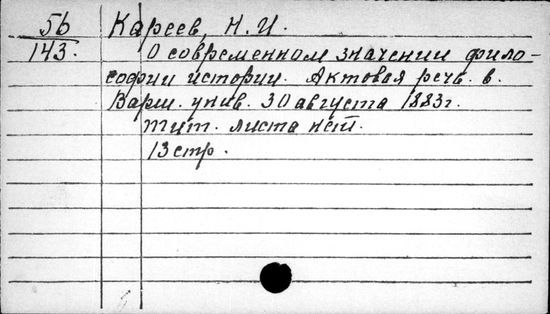 56 Кареев, Н. И.
143. О современном значении фило-
софии истории. Актовая речь. в.
Варш. унив. 30 августа 1883г.
тит. листа нет.
13 стр.